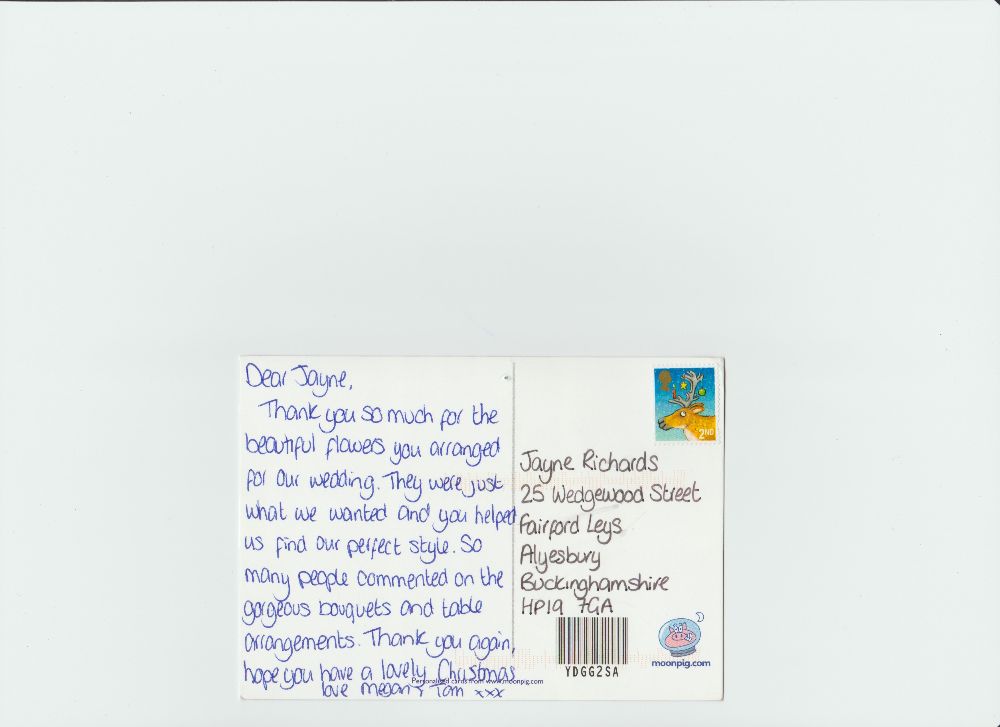 Dear Jayne,
Thank you so much for the
beautiful flowers you arranged
for our wedding. They were just
what we wanted and you helped
us find our perfect style. So
many people commented on the
gorgeous bouquets and table
arrangements. Thank you again,
hope you have a lovely Christmas
love megan & Tom xxx
Personalised cards from www.moonpig.com
2ND
Jayne Richards
25 Wedgewood Street
Fairford Leys
Alyesbury
Buckinghamshire
HP19 7GA
YDGG2SA
moonpig.com